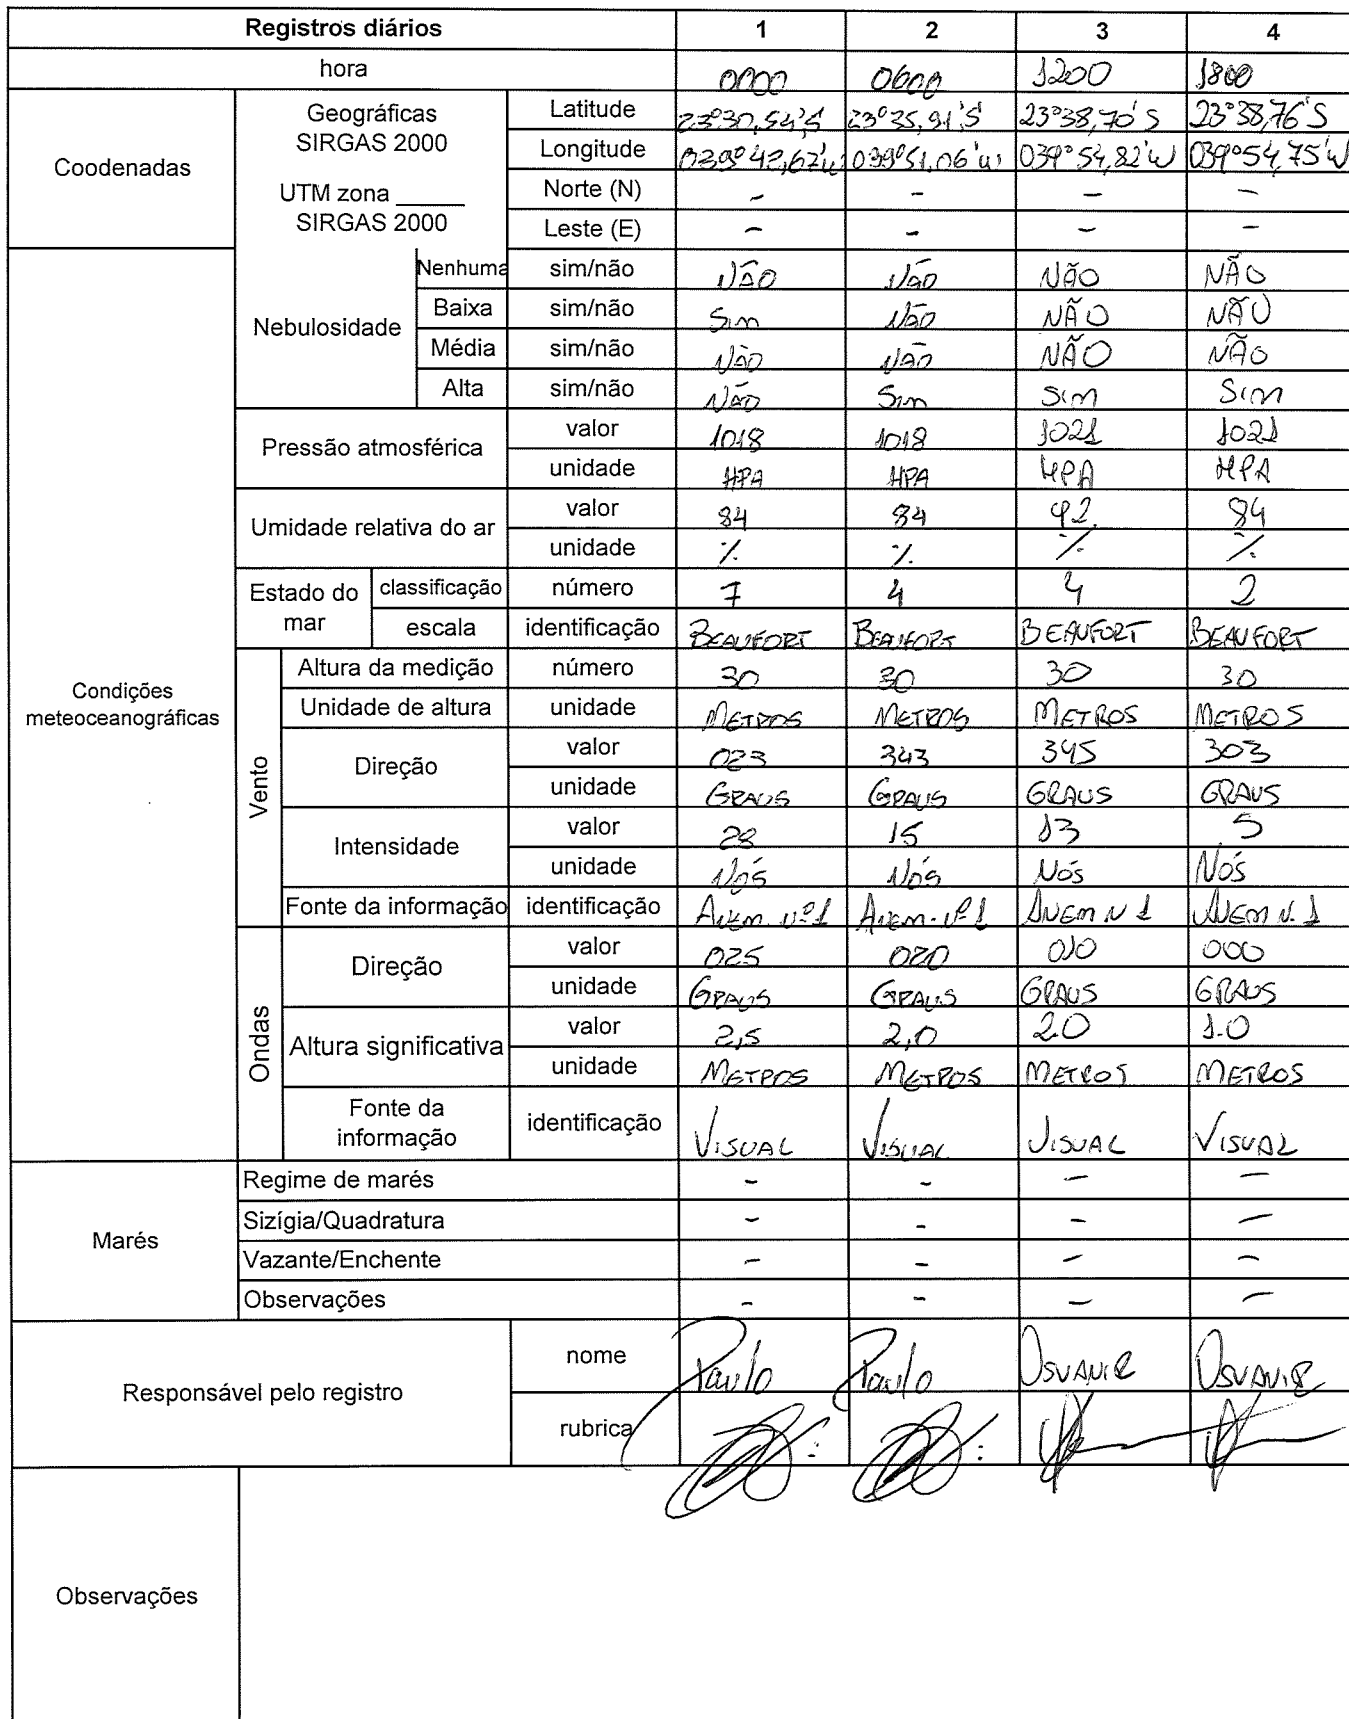 Registros diários 1 2 3 4
hora 0000 0600 1200 1800
Coodenadas
Geográficas
SIRGAS 2000
UTM zona ______
SIRGAS 2000
Latitude 23°30,54'S 23°35,91'S 23°38,70'S 23°38,76'S
Longitude 039°42,67'W 039°51,06'W 039°54,82'W 039°54,75'W
Norte (N) - - - -
Leste (E) - - - -
Condições
meteoceanográficas
Nebulosidade
Nenhuma sim/não NÃO NÃO NÃO NÃO
Baixa sim/não Sim NÃO NÃO NÃO
Média sim/não NÃO NÃO NÃO NÃO
Alta sim/não NÃO Sim Sim Sim
Pressão atmosférica
valor 1018 1018 1021 1021
unidade HPA HPA HPA HPA
Umidade relativa do ar
valor 84 84 92 84
unidade % % % %
Estado do
mar
classificação número 7 4 4 2
escala identificação BEAUFORT BEAUFORT BEAUFORT BEAUFORT
Vento
Altura da medição número 30 30 30 30
Unidade de altura unidade METROS METROS METROS METROS
Direção
valor 023 343 345 303
unidade GRAUS GRAUS GRAUS GRAUS
Intensidade
valor 28 15 13 5
unidade NÓS NÓS NÓS NÓS
Fonte da informação identificação ANEM. Nº1 ANEM. Nº1 ANEM N 1 ANEM N. 1
Ondas
Direção
valor 025 020 010 000
unidade GRAUS GRAUS GRAUS GRAUS
Altura significativa
valor 2,5 2,0 2.0 1.0
unidade METROS METROS METROS METROS
Fonte da
informação
identificação VISUAL VISUAL VISUAL VISUAL
Marés
Regime de marés - - - -
Sizígia/Quadratura - - - -
Vazante/Enchente - - - -
Observações - - - -
Responsável pelo registro
nome Paulo Paulo OSVANIR OSVANIR
rubrica
Observações